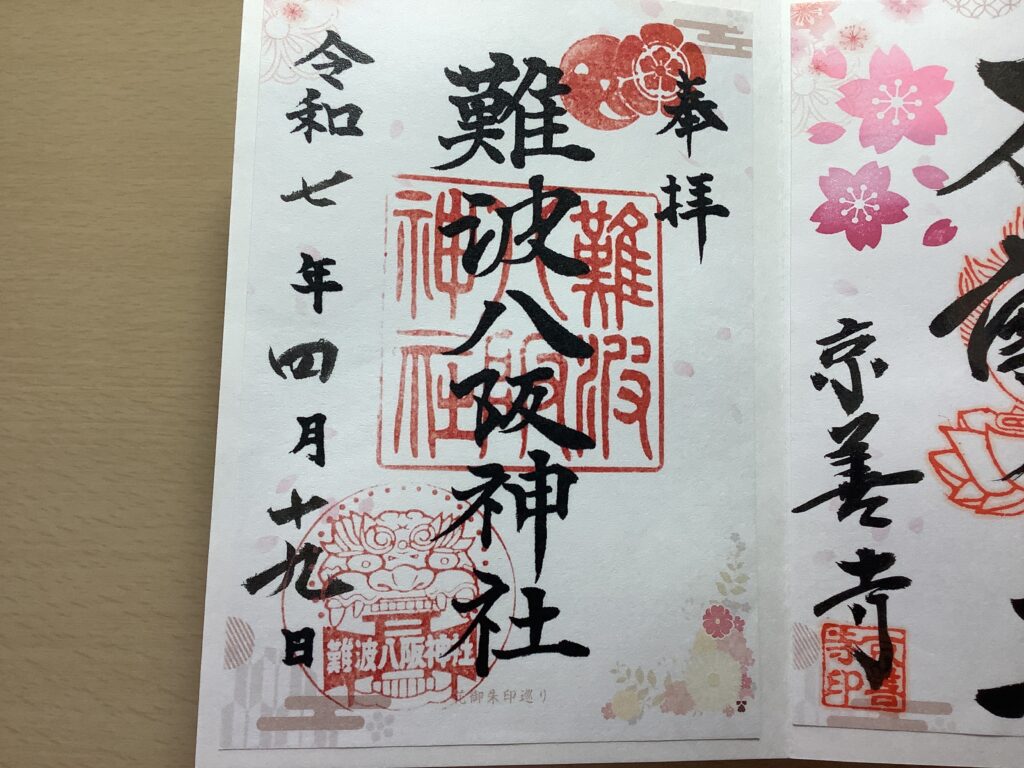 京善寺
京善寺印
奉拝
難波八阪神社
難波八阪神社
令和七年四月十九日
難波八阪神社
花御朱印巡り